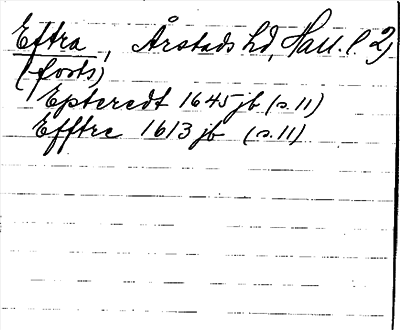 Eftra, Årstads hd, Hall. l. 2)
(forts)
Epteredt 1645 jb (s. 11)
Efftre 1613 jb (s. 11)